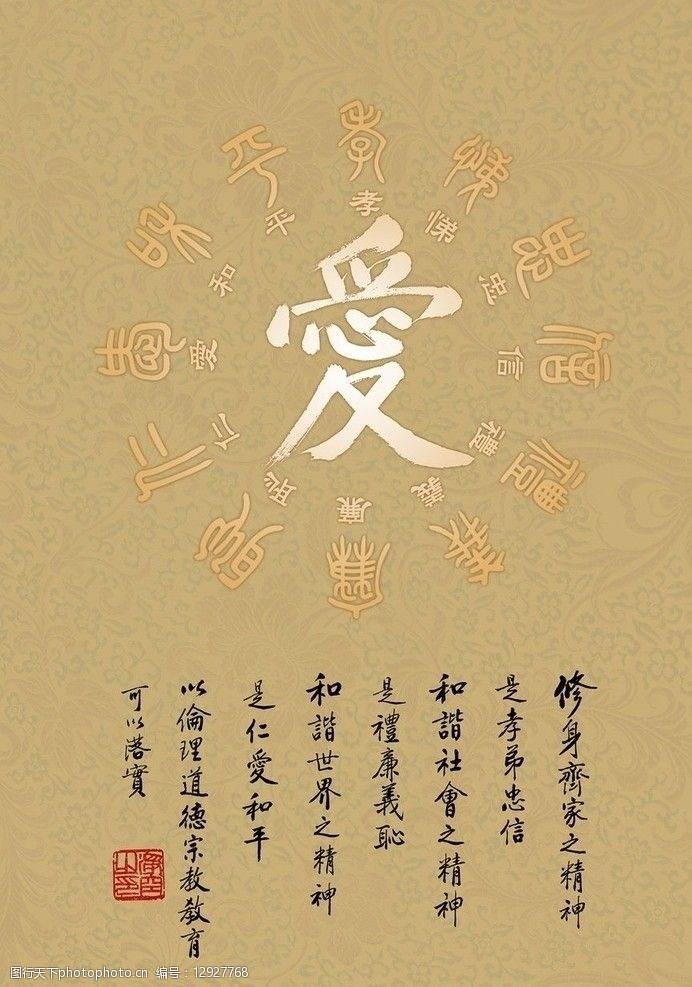 愛
孝
悌
忠
信
禮
義
廉
恥
仁
愛
和
平
修身齊家之精神
是孝弟忠信
和諧社會之精神
是禮廉義恥
和諧世界之精神
是仁愛和平
以倫理道德宗教教育
可以落實
图行天下photophoto.cn 编号：12927768